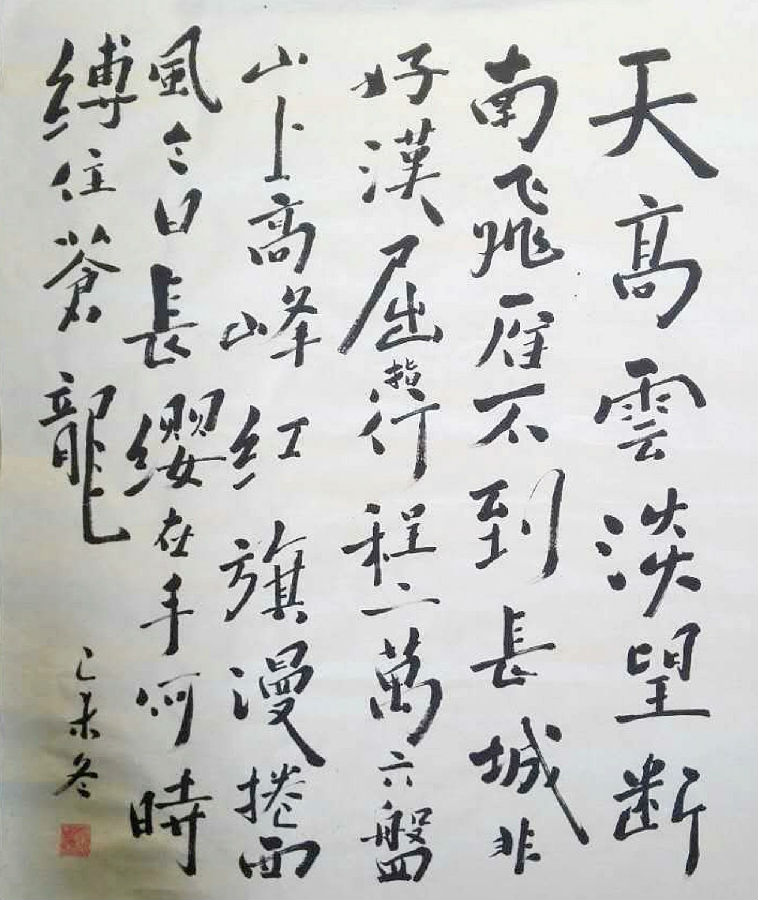 天高雲淡望斷
南飛雁不到長城非
好漢屈指行程二萬六盤
山上高峰紅旗漫捲西
風今日長纓在手何時
縛住蒼龍
己未冬